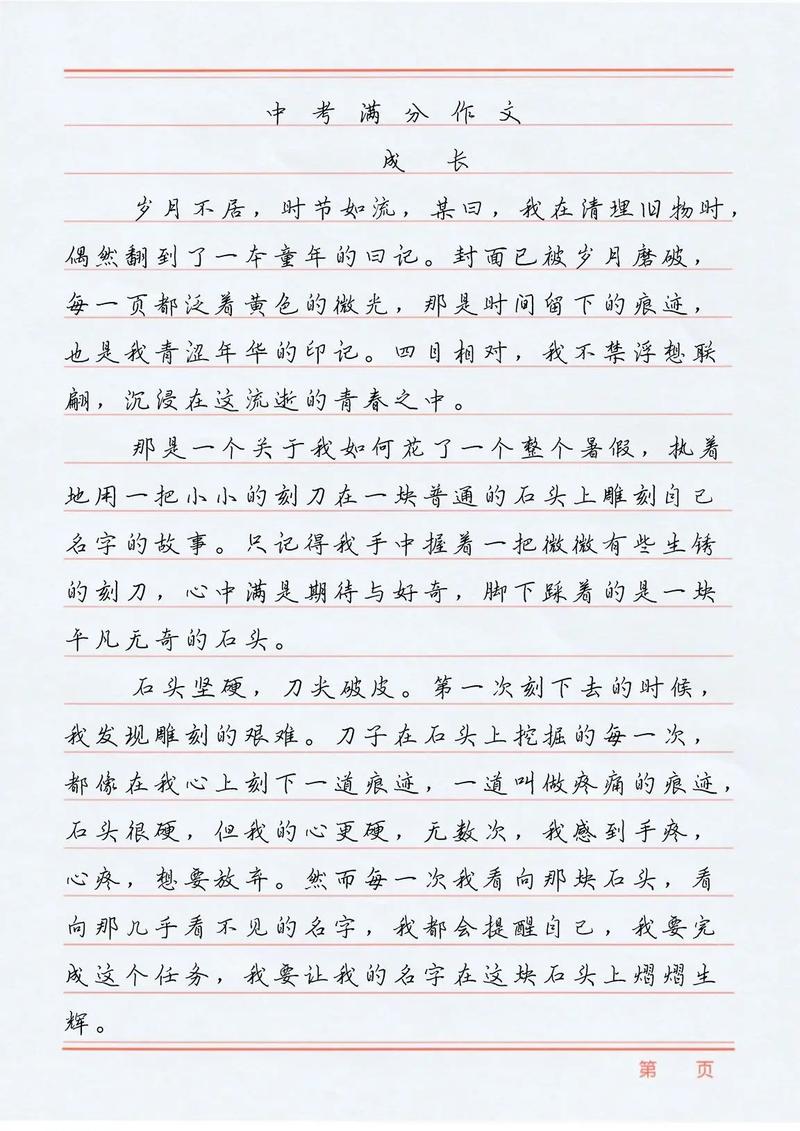 中考满分作文
成长
岁月不居，时节如流，某日，我在清理旧物时，
偶然翻到了一本童年的日记。封面已被岁月磨破，
每一页都泛着黄色的微光，那是时间留下的痕迹，
也是我青涩年华的印记。四目相对，我不禁浮想联
翩，沉浸在这流逝的青春之中。
那是一个关于我如何花了一个整个暑假，执着
地用一把小小的刻刀在一块普通的石头上雕刻自己
名字的故事。只记得我手中握着一把微微有些生锈
的刻刀，心中满是期待与好奇，脚下踩着的是一块
平凡无奇的石头。
石头坚硬，刀尖破皮。第一次刻下去的时候，
我发现雕刻的艰难。刀子在石头上挖掘的每一次，
都像在我心上刻下一道痕迹，一道叫做疼痛的痕迹，
石头很硬，但我的心更硬，无数次，我感到手疼，
心疼，想要放弃。然而每一次我看向那块石头，看
向那几乎看不见的名字，我都会提醒自己，我要完
成这个任务，我要让我的名字在这块石头上熠熠生
辉。
第 页